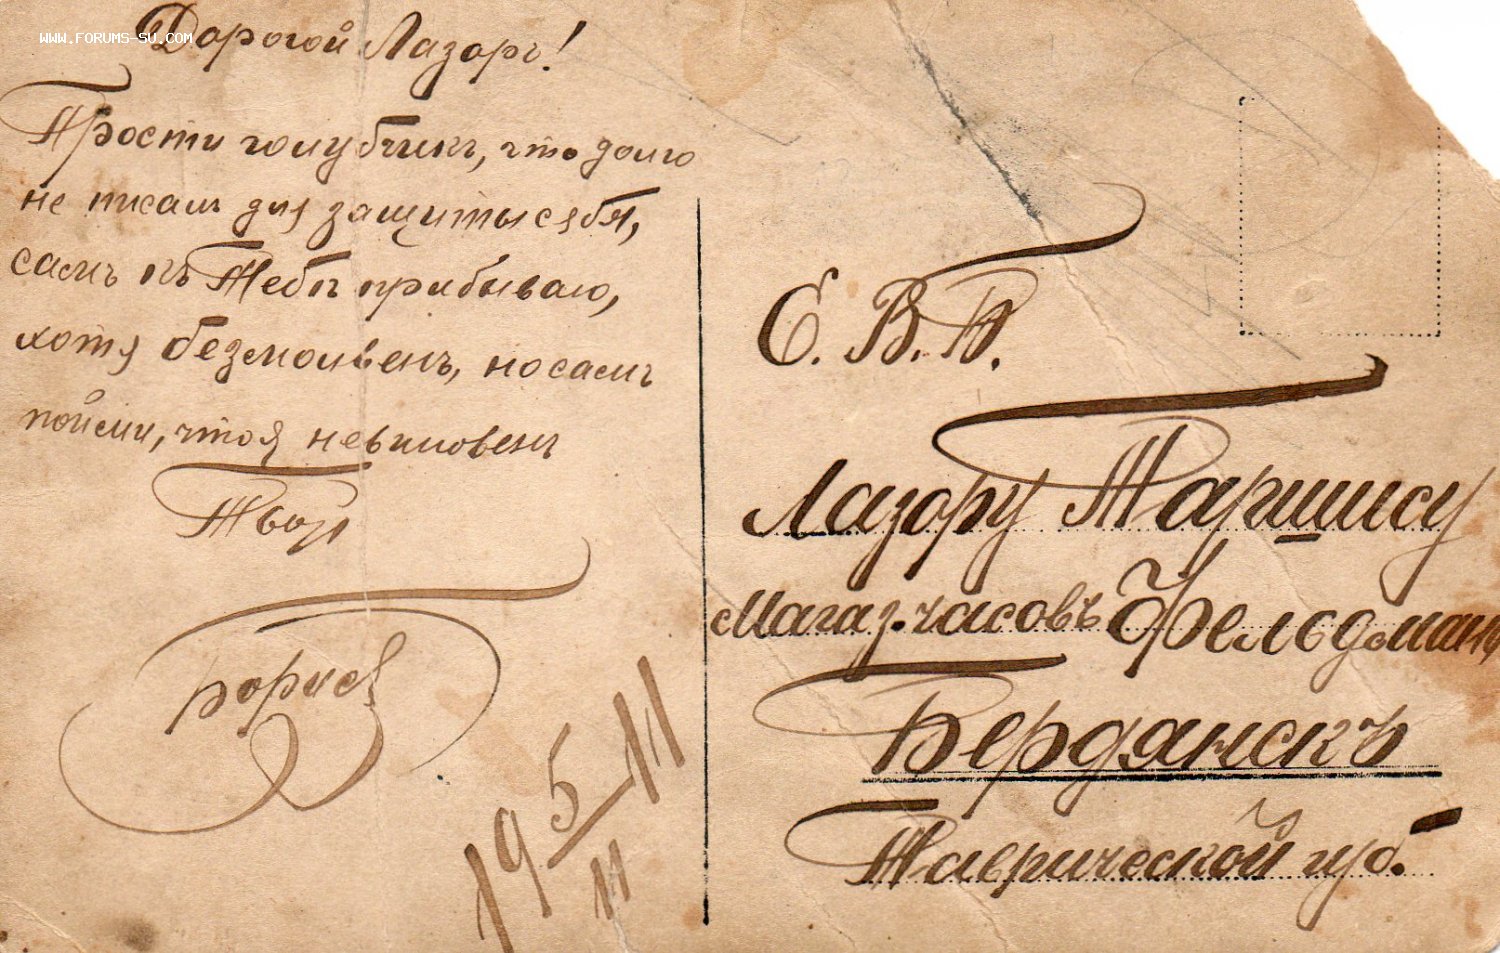 www.forums-su.com
Дорогой Лазарь!
Прости голубчикъ, что долго
не писалъ для защиты себя,
самъ къ Тебѣ прибываю,
хотя безмолвенъ, но самъ
пойми, что я невиновенъ
Твой
Борисъ
19 5/11 11
Е. В. П.
Лазарю Таршису
Магаз. часовъ Фельдмана
Бердянскъ
Таврической губ.